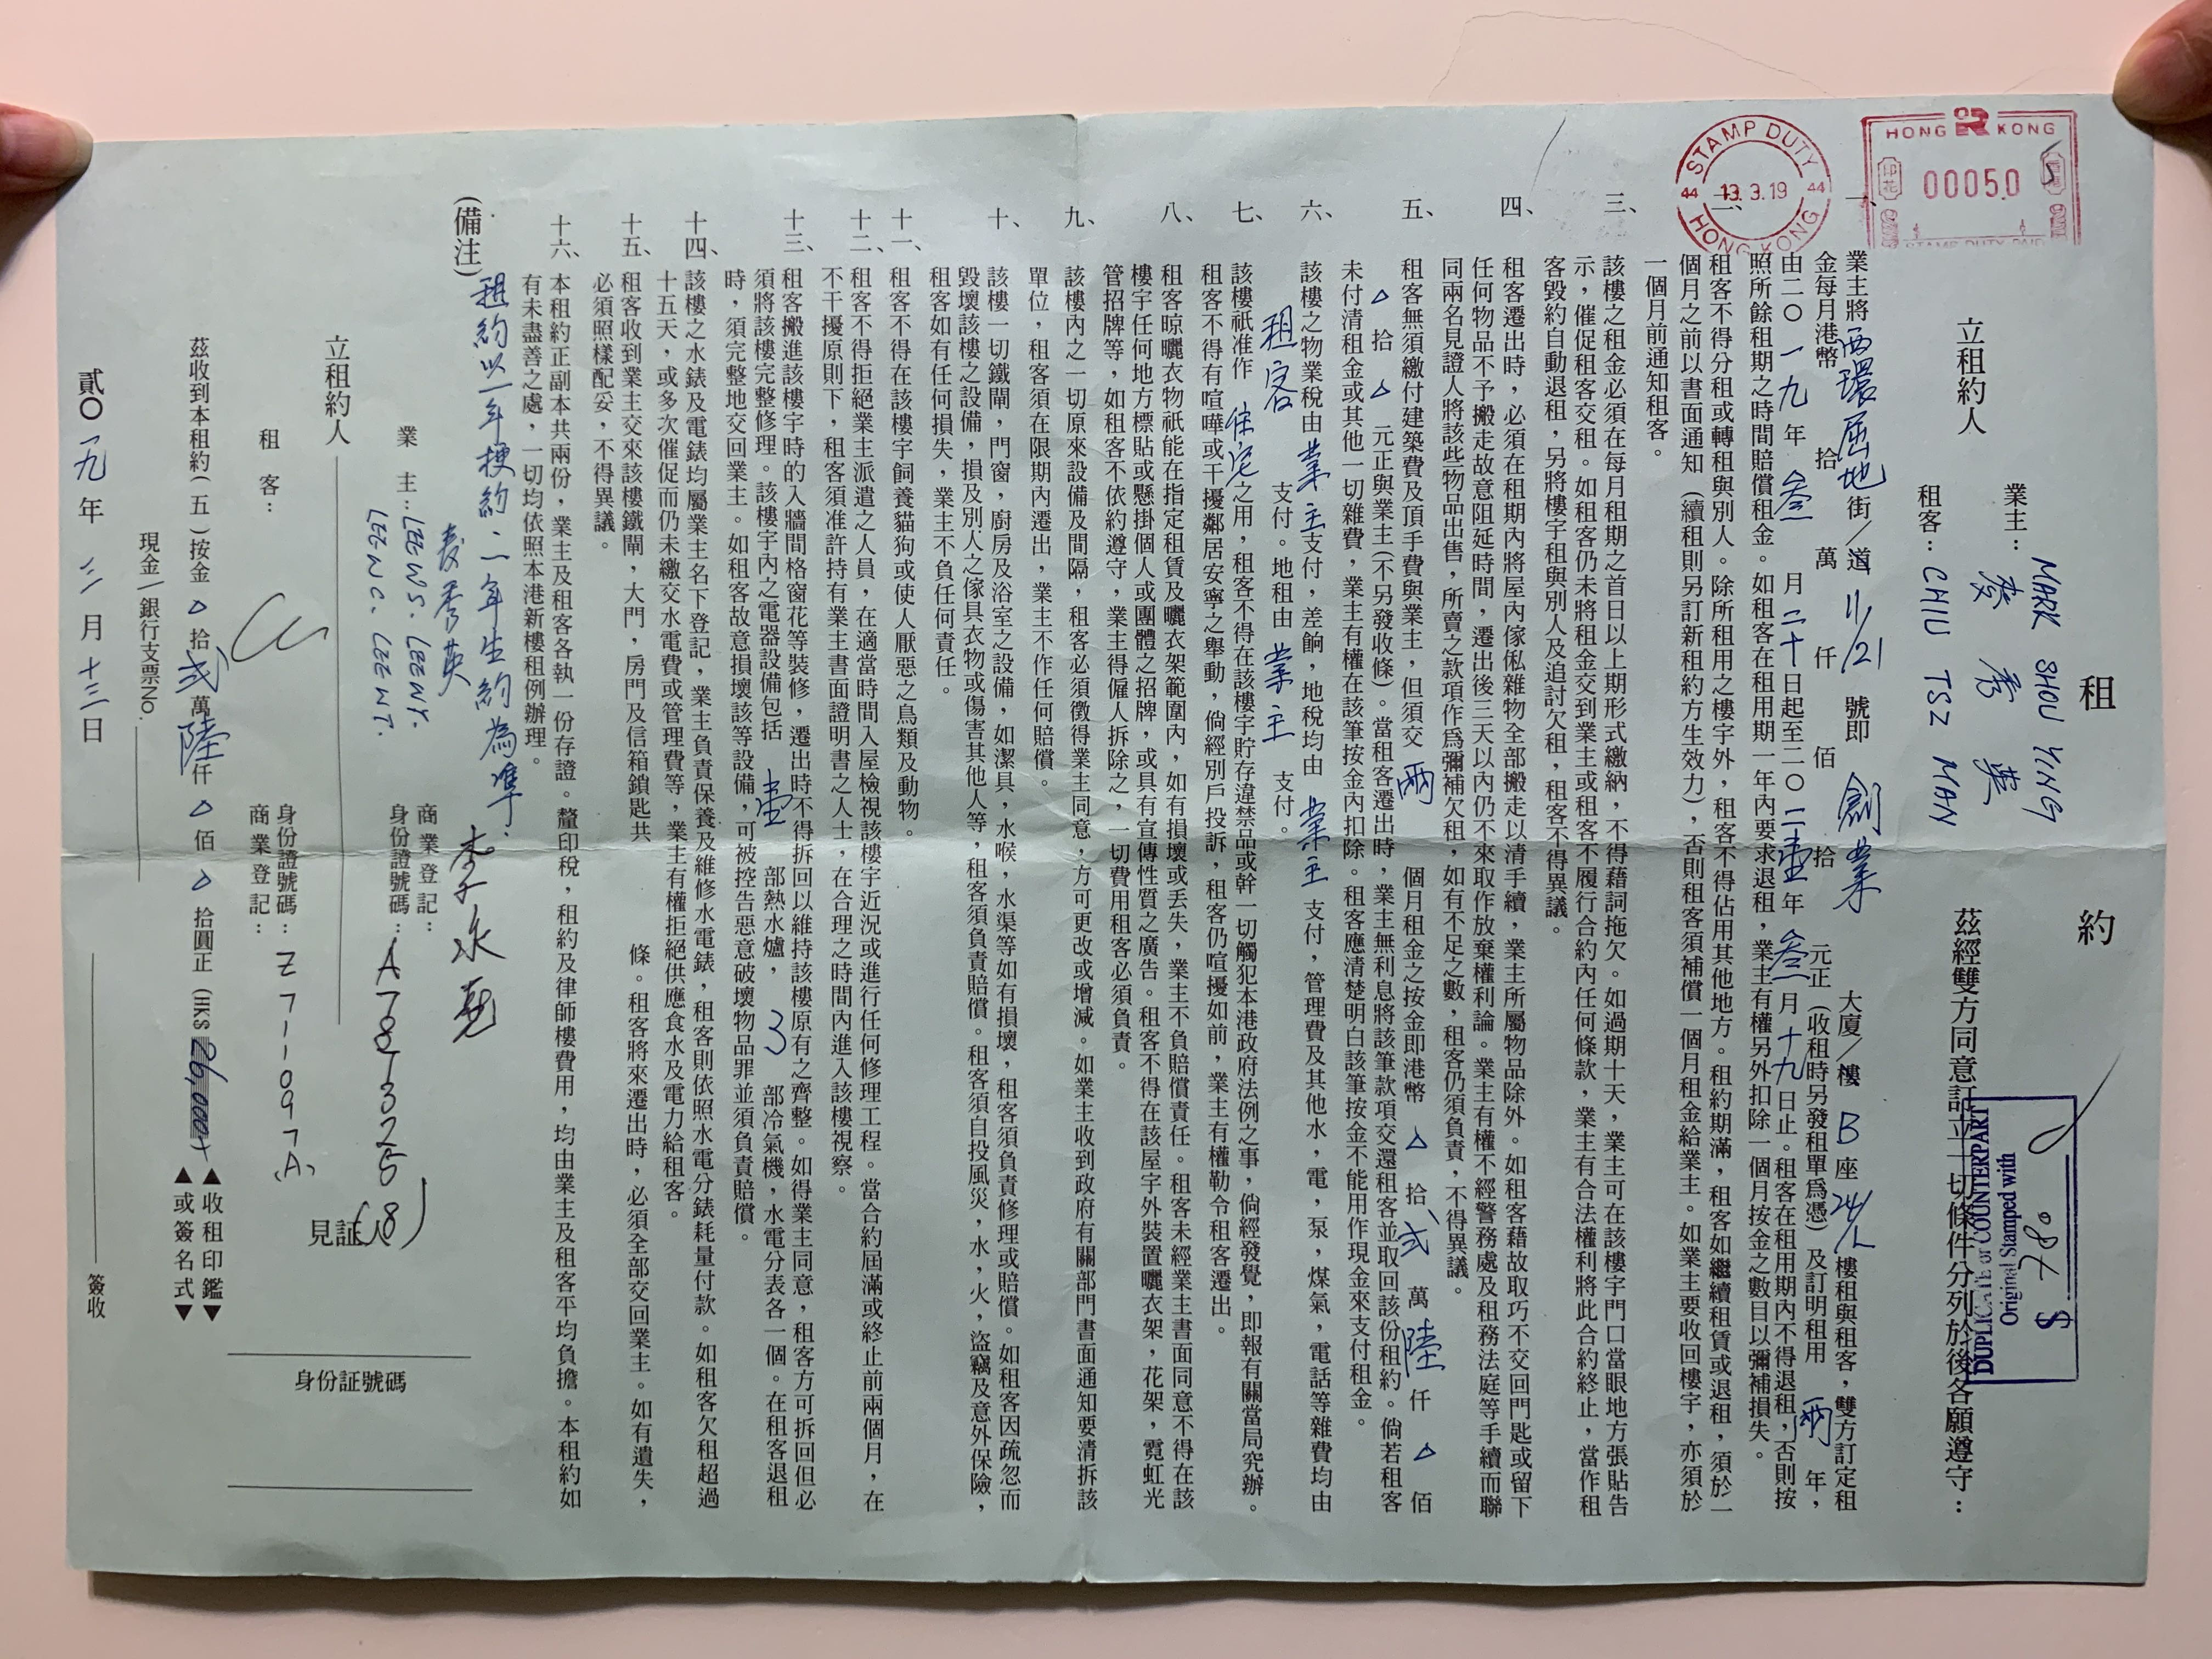 租約
立租約人
業主：MARK SHOU YING
麥秀英
租客：CHIU TSZ MAN
茲經雙方同意訂立一切條件分列於後各願遵守：
HONG KONG
00050
印花
STAMP DUTY PAID
STAMP DUTY
44 13.3.19 44
HONG KONG
DUPLICATE or COUNTERPART
Original Stamped with
$
一、業主將西環屈地街／道11/21號即創業大廈／樓B座24/L樓租與租客，雙方訂定租
金每月港幣 拾 萬 仟 佰 拾 元正（收租時另發租單爲憑）及訂明租用兩年，
二、由二〇一九年叁月二十日起至二〇二壹年叁月十九日止。租客在租用期內不得退租，否則按
照所餘租期之時間賠償租金。如租客在租用期一年內要求退租，業主有權另外扣除一個月按金之數目以彌補損失。
租客不得分租或轉租與別人。除所租用之樓宇外，租客不得佔用其他地方。租約期滿，租客如繼續租賃或退租，須於一
個月之前以書面通知（續租則另訂新租約方生效力），否則租客須補償一個月租金給業主。如業主要收回樓宇，亦須於
一個月前通知租客。
三、該樓之租金必須在每月租期之首日以上期形式繳納，不得藉詞拖欠。如過期十天，業主可在該樓宇門口當眼地方張貼告
示，催促租客交租。如租客仍未將租金交到業主或租客不履行合約內任何條款，業主有合法權利將此合約終止，當作租
客毀約自動退租，另將樓宇租與別人及追討欠租，租客不得異議。
四、租客遷出時，必須在租期內將屋內傢俬雜物全部搬走以清手續，業主所屬物品除外。如租客藉故取巧不交回門匙或留下
任何物品不予搬走故意阻延時間，遷出後三天以內仍不來取作放棄權利論。業主有權不經警務處及租務法庭等手續而聯
同兩名見證人將該些物品出售，所賣之款項作爲彌補欠租，如有不足之數，租客仍須負責，不得異議。
五、租客無須繳付建築費及頂手費與業主，但須交兩個月租金之按金即港幣 △ 拾 弍 萬 陸 仟 △ 佰
△ 拾 △ 元正與業主（不另發收條）。當租客遷出時，業主無利息將該筆款項交還租客並取回該份租約。倘若租客
未付清租金或其他一切雜費，業主有權在該筆按金內扣除。租客應清楚明白該筆按金不能用作現金來支付租金。
六、該樓之物業稅由業主支付，差餉，地稅均由業主支付，管理費及其他水，電，泵，煤氣，電話等雜費均由
租客支付。地租由業主支付。
七、該樓祇准作住宅之用，租客不得在該樓宇貯存違禁品或幹一切觸犯本港政府法例之事，倘經發覺，即報有關當局究辦。
租客不得有喧嘩或干擾鄰居安寧之舉動，倘經別戶投訴，租客仍喧擾如前，業主有權勒令租客遷出。
八、租客晾曬衣物祇能在指定租賃及曬衣架範圍內，如有損壞或丟失，業主不負賠償責任。租客未經業主書面同意不得在該
樓宇任何地方標貼或懸掛個人或團體之招牌，或具有宣傳性質之廣告。租客不得在該屋宇外裝置曬衣架，花架，霓虹光
管招牌等，如租客不依約遵守，業主得僱人拆除之，一切費用租客必須負責。
九、該樓內之一切原來設備及間隔，租客必須徵得業主同意，方可更改或增減。如業主收到政府有關部門書面通知要清拆該
單位，租客須在限期內遷出，業主不作任何賠償。
十、該樓一切鐵閘，門窗，廚房及浴室之設備，如潔具，水喉，水渠等如有損壞，租客須負責修理或賠償。如租客因疏忽而
毀壞該樓之設備，損及別人之傢具衣物或傷害其他人等，租客須負責賠償。租客須自投風災，水，火，盜竊及意外保險，
租客如有任何損失，業主不負任何責任。
十一、租客不得在該樓宇飼養貓狗或使人厭惡之鳥類及動物。
十二、租客不得拒絕業主派遣之人員，在適當時間入屋檢視該樓宇近況或進行任何修理工程。當合約屆滿或終止前兩個月，在
不干擾原則下，租客須准許持有業主書面證明書之人士，在合理之時間內進入該樓視察。
十三、租客搬進該樓宇時的入牆間格窗花等裝修，遷出時不得拆回以維持該樓原有之齊整。如得業主同意，租客方可拆回但必
須將該樓完整修理。該樓宇內之電器設備包括壹部熱水爐，3部冷氣機，水電分表各一個。在租客退租
時，須完整地交回業主。如租客故意損壞該等設備，可被控告惡意破壞物品罪並須負責賠償。
十四、該樓之水錶及電錶均屬業主名下登記，業主負責保養及維修水電錶，租客則依照水電分錶耗量付款。如租客欠租超過
十五天，或多次催促而仍未繳交水電費或管理費等，業主有權拒絕供應食水及電力給租客。
十五、租客收到業主交來該樓鐵閘，大門，房門及信箱鎖匙共 條。租客將來遷出時，必須全部交回業主。如有遺失，
必須照樣配妥，不得異議。
十六、本租約正副本共兩份，業主及租客各執一份存證。釐印稅，租約及律師樓費用，均由業主及租客平均負擔。本租約如
有未盡善之處，一切均依照本港新樓租例辦理。
（備注）租約以一年梗約二年生約為準．
立租約人
業主：麥秀英
LEE WS. LEE WY.
LEE W C. LEE W T.
商業登記：
身份證號碼：A781325(8)
租客：
身份證號碼：Z711097(A)
商業登記：
見証人
身份証號碼
茲收到本租約（五）按金 △ 拾 弍 萬 陸 仟 △ 佰 △ 拾圓正（HK$ 26,000
▲收租印鑑▼
▲或簽名式▼
現金／銀行支票No.
簽收
貳〇一九年三月十三日